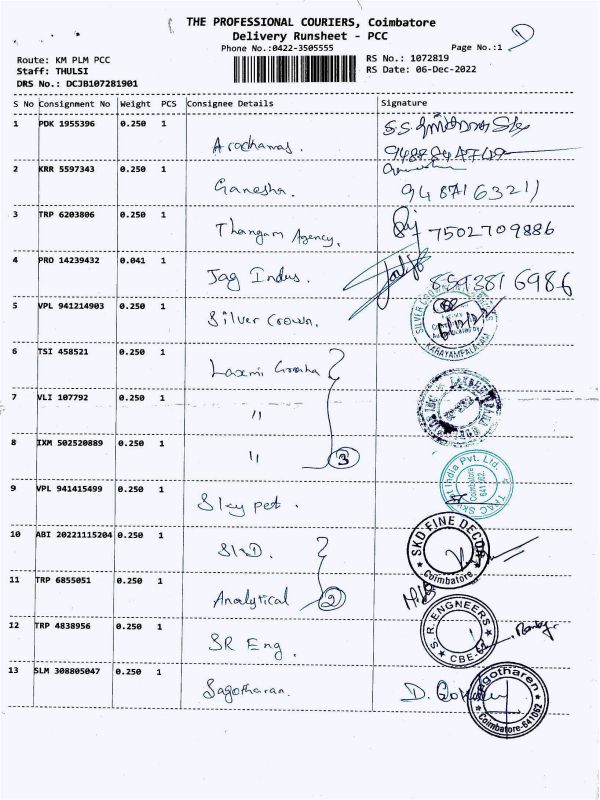 THE PROFESSIONAL COURIERS, Coimbatore
Delivery Runsheet - PCC
Phone No.:0422-3505555
Page No.:1
Route: KM PLM PCC
Staff: THULSI
DRS No.: DCJB107281901
RS No.: 1072819
RS Date: 06-Dec-2022
S No Consignment No Weight PCS Consignee Details Signature
1 PDK 1955396 0.250 1
2 KRR 5597343 0.250 1 Ganesha. 9487163211
3 TRP 6203806 0.250 1 Thangam Agency. 7502709886
4 PRO 14239432 0.041 1 Jag Indus.
5 VPL 941214903 0.250 1 Silver Crown. KARAYAMPALAYAM
6 TSI 458521 0.250 1 Laxmi
7 VLI 107792 0.250 1 "
8 IXM 502520889 0.250 1 " 3
India Pvt. Ltd. Coimbatore 641 062.
9 VPL 941415499 0.250 1 Sky pet.
10 ABI 20221115204 0.250 1 SKD. SKD FINE DECOR Coimbatore
11 TRP 6855051 0.250 1 Analytical 2
12 TRP 4838956 0.250 1 SR Eng. S.R. ENGNEERS CBE-62
13 SLM 308805047 0.250 1 Sagotharan. D. Sagotharen Coimbatore-641062